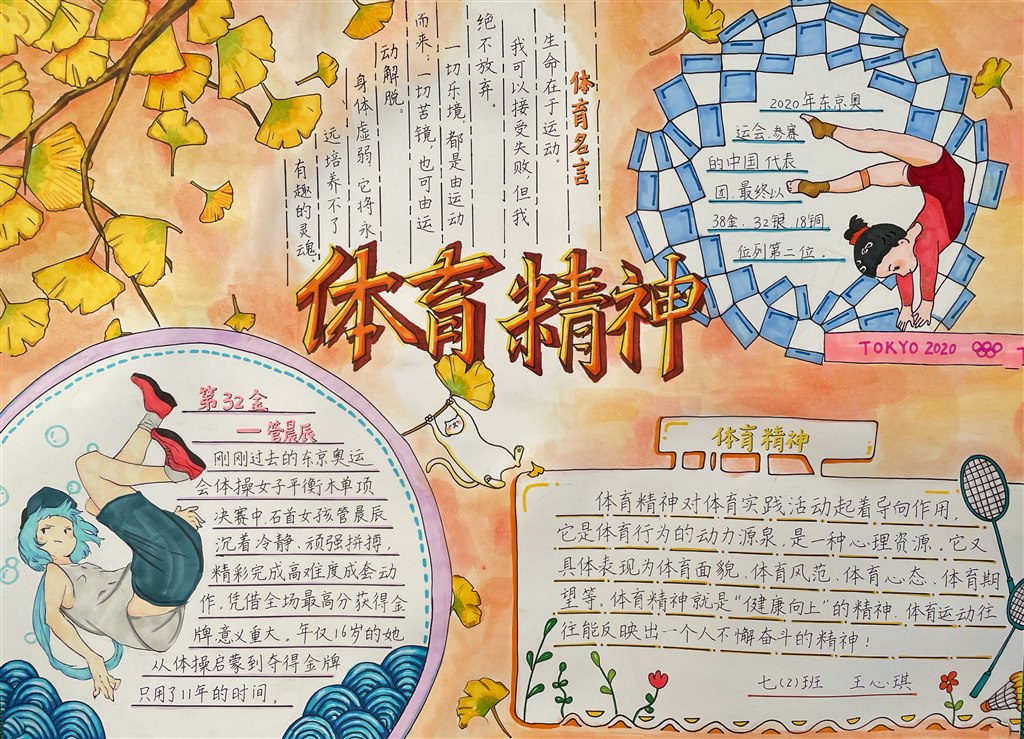 体育精神
体育名言
生命在于运动。
我可以接受失败,但我
绝不放弃。
一切乐境,都是由运动
而来;一切苦镜,也可由运
动解脱。
身体虚弱,它将永
远培养不了
有趣的灵魂。
2020年东京奥
运会,参赛
的中国代表
团,最终以
38金、32银、18铜,
位列第二位。
TOKYO 2020
第32金
—管晨辰
刚刚过去的东京奥运
会体操女子平衡木单项
决赛中,石首女孩管晨辰
沉着冷静、顽强拼搏,
精彩完成高难度成套动
作,凭借全场最高分获得金
牌,意义重大。年仅16岁的她
从体操启蒙到夺得金牌
只用了11年的时间。
体育精神
体育精神对体育实践活动起着导向作用,
它是体育行为的动力源泉,是一种心理资源,它又
具体表现为体育面貌、体育风范、体育心态、体育期
望等,体育精神就是“健康向上”的精神,体育运动往
往能反映出一个人不懈奋斗的精神!
七(2)班 王心琪